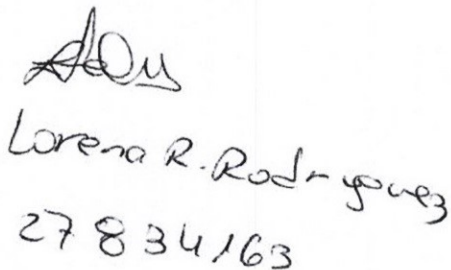 Lorena R. Rodryguez
27834163